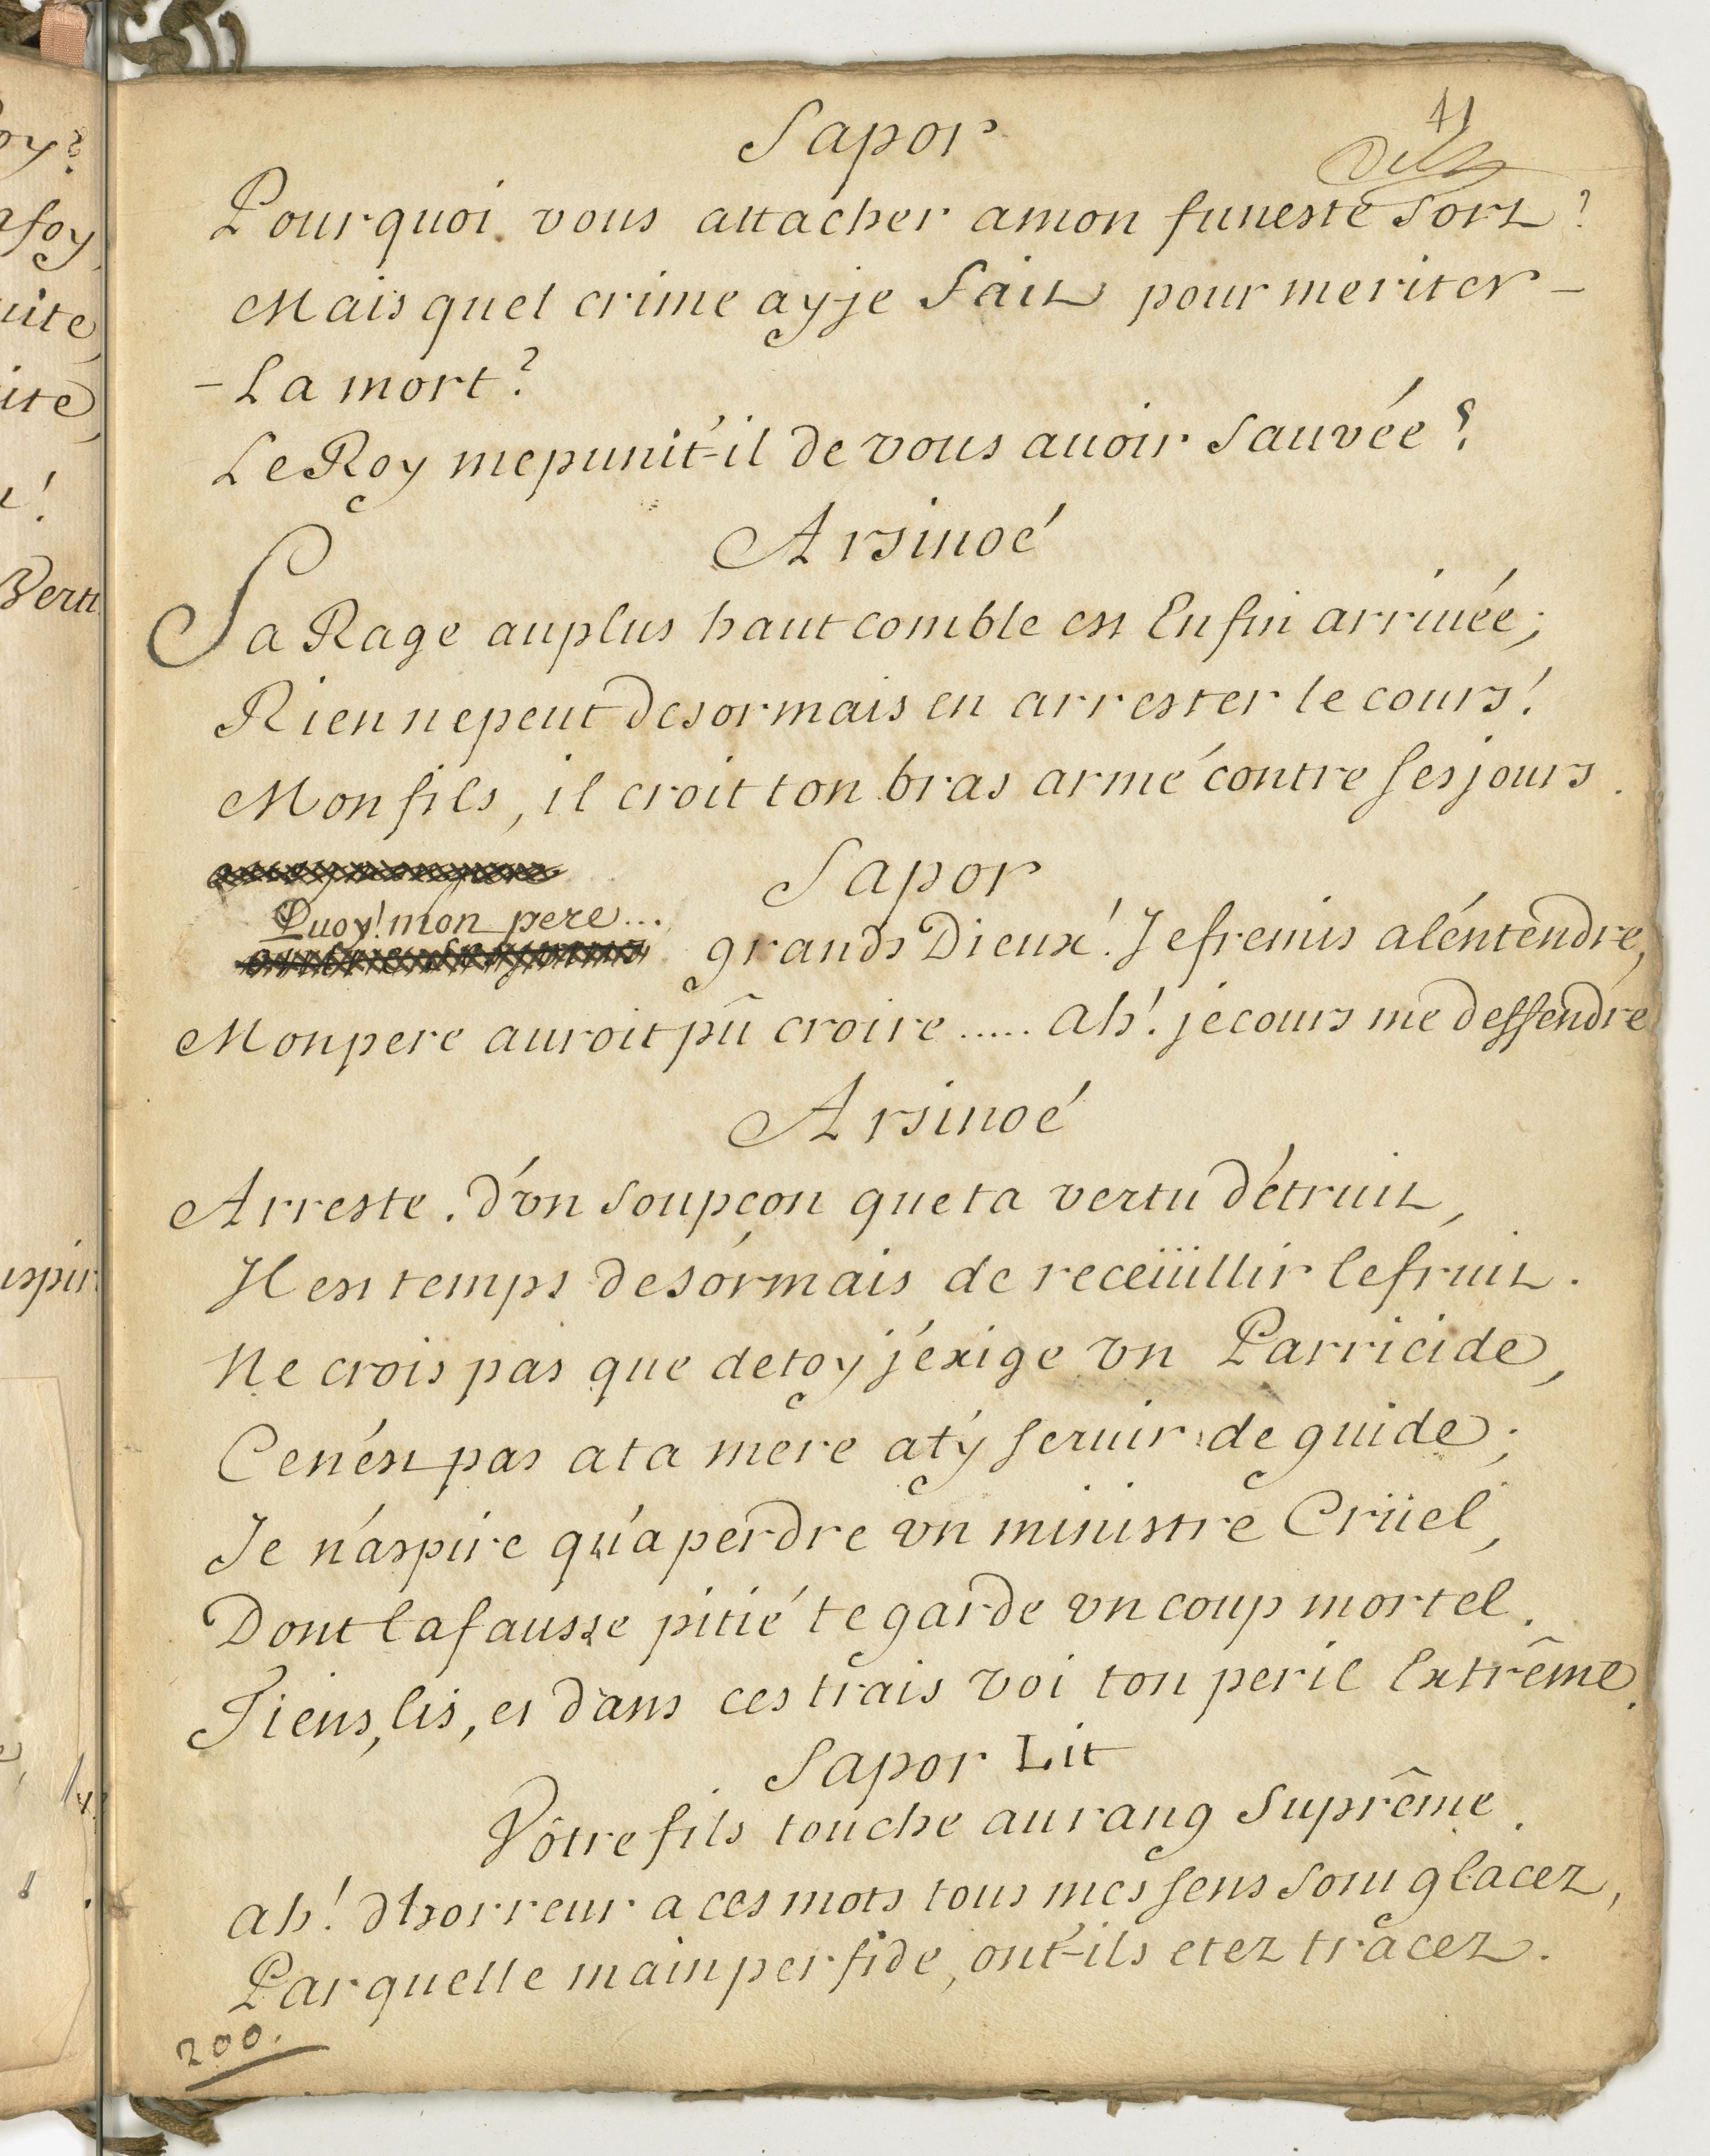 41
Sapor
Pourquoi vous attacher amon funeste Sort ?
Mais quel crime ay je fait pour meriter -
- La mort ?
Le Roy me punit-il de vous auoir Sauvée ?
Arsinoé
Sa Rage auplus haut comble est Enfin arriuée ;
Rien nepeut desormais en arrester le cours !
Mon fils, il croit ton bras armé contre ses jours .
Sapor
Quoy! mon pere...
grands Dieux ! Je fremis al'entendre,
Mon pere auroit pû croire ..... ah ! je cours me deffendre
Arsinoé
Arreste . d'vn Soupçon que ta vertu d'étruit,
Il est temps desormais de receüillir le fruit .
Ne crois pas que de toy j'éxige vn Parricide,
Ce n'ést pas a ta mere a t'y seruir de guide ;
Je n'aspire qu'a perdre vn ministre Crüel,
Dont la fausse pitié te garde vn coup mortel .
Tiens, lis, et dans ces trais voi ton peril Extrême .
Sapor Lit
Vôtre fils touche au rang Suprême .
ah ! d'horreur a ces mots tous mes sens Sont glacez,
Par quelle main perfide, ont-ils etez tracez .
200.
oy ?
foy
uite,
ite,
!
Vertu